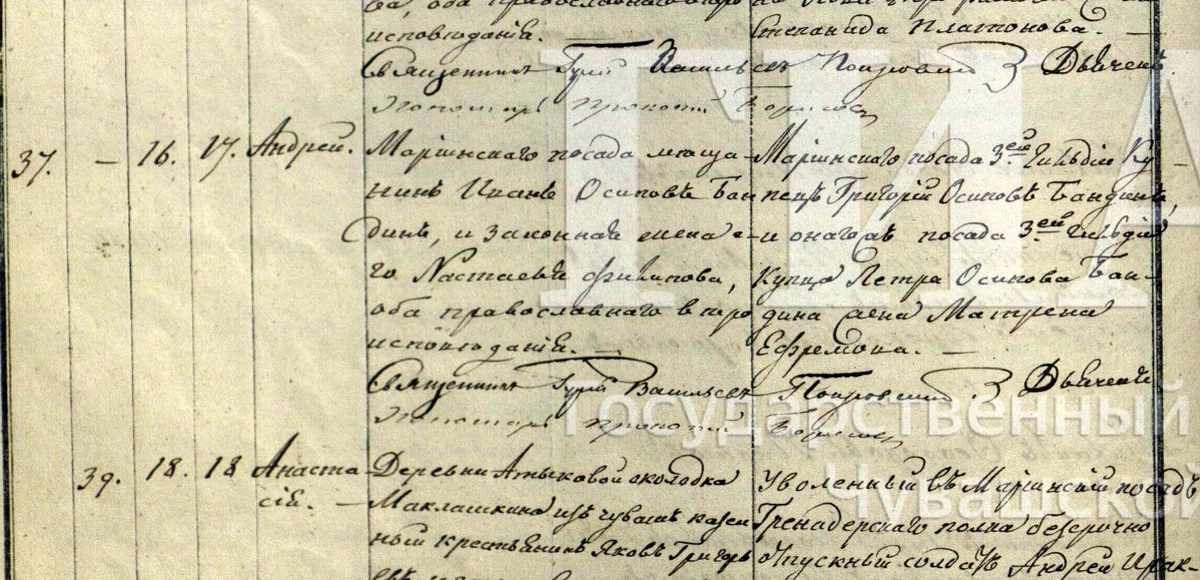 ва, оба православнаго
исповѣданія. — Степанида Платонова. —
Священникъ Гурій Васильевъ Покровскій Дьяченъ
Пономарь Прокопій Борисовъ
37. — 16. 17. Андрей. Маріинскаго посада мѣща- Маріинскаго посада 3ей Гильдіи Ку-
нинъ Иванъ Осиповъ Бан- пецъ Григорій Осиповъ Бандинъ,
динъ, и законная жена е- и онагожъ посада 3ей Гильдіи
го Настасья Филипова, Купца Петра Осипова Бан-
оба православнаго вѣро дина жена Матрена
исповѣданія. — Ефремова. —
Священникъ Гурій Васильевъ Покровскій Дьяченъ
Пономарь Прокопій Борисовъ
39. 18. 18 Анаста- Деревни Атыковой околодка Уволенный въ Маріинскій посадъ
сія. — Маклашкина изъ чувашъ казен Гренадерскаго полка безсрочно
ный крестьянинъ Яковъ Григорь отпускный солдатъ Андрей
ГИА
Государственный
Чувашской